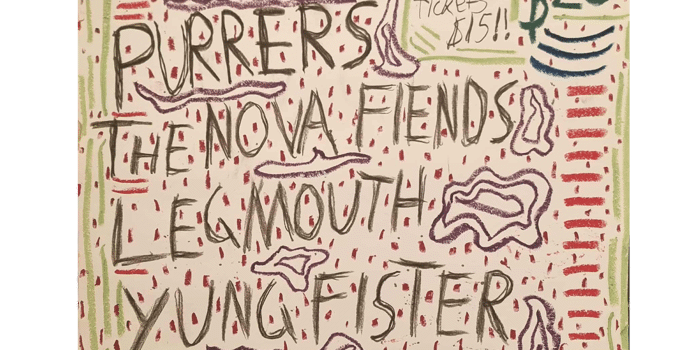 PURRERS
tickets
$15!!
$20
THE NOVA FIENDS
LEGMOUTH
YUNG FISTER